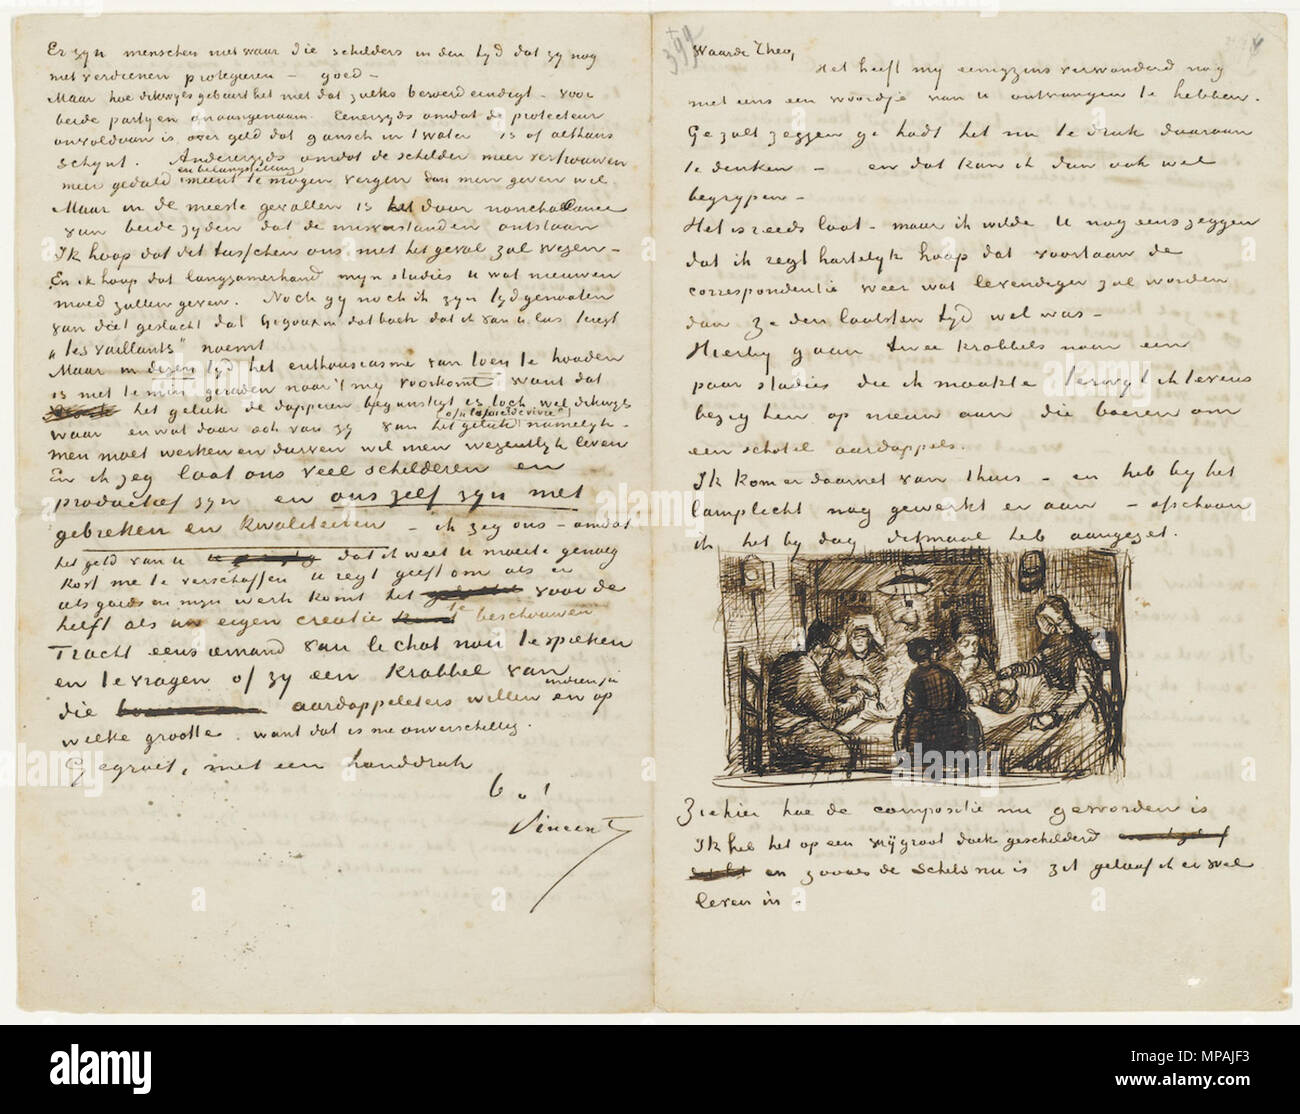 Waarde Theo,
Het heeft my eenigzins verwonderd nog
niet eens een woordje van U ontvangen te hebben.
Ge zult zeggen ge hadt het nu te druk daaraan
te denken – en dat kan ik dan ook wel
begrypen –
Het is reeds laat – maar ik wilde U nog eens zeggen
dat ik regt hartelyk hoop dat voortaan de
correspondentie weer wat levendiger zal worden
dan ze den laatsten tyd wel was –
Hierby gaan twee krabbels naar een
paar studies die ik maakte terwyl ik tevens
bezig ben op nieuw aan die boeren om
een schotel aardappels.
Ik kom er daarnet van thuis – en heb by het
lamplicht nog gewerkt er aan – ofschoon
ik het by dag ditmaal heb aangezet.
Ziehier hoe de compositie nu geworden is
Ik heb het op een vrij groot doek geschilderd
en zooals de schets nu is zit geloof ik er wel
leven in –
Er zyn menschen niet waar die schilders in den tyd dat zy nog
niet verdienen protegeeren – goed –
Maar hoe dikwyls gebeurt het niet dat zulks beroerd eindigt – voor
beide partyen onaangenaam. Eenerzyds omdat de protecteur
onvoldaan is over geld dat gansch in 't water is of althans
schynt. Anderzyds omdat de schilder meer vertrouwen
meer geduld en belangstelling meent te mogen vergen dan men geven wil
Maar in de meeste gevallen is het door nonchalance
van beide zyden dat de misverstanden ontstaan
Ik hoop dat dit tusschen ons niet het geval zal wezen –
En ik hoop dat langzamerhand myn studies U wat nieuwen
moed zullen geven. Noch gy noch ik zyn tydgenooten
van die't geslacht dat Gigoux in dat boek dat ik van U las teregt
„les vaillants" noemt
Maar in dezen tyd het enthousiasme van toen te houden
is niet te min geraden naar 't my voorkomt want dat
het geluk de dapperen begunstigt is toch wel dikwyls
waar en wat daar ook van zy van het geluk of „la joie de vivre" namelyk –
men moet werken en durven wil men wezentlyk leven
En ik zeg laat ons veel schilderen en
productief zyn en ons zelf zyn met
gebreken en kwaliteiten – ik zeg ons – omdat
het geld van U dat ik weet U moeite genoeg
kost me te verschaffen U regt geeft om als er
iets goeds in myn werk komt het voor de
helft als uw eigen creatie te beschouwen
Tracht eens iemand van le chat noir te spreken
en te vragen of zy een krabbel van
die aardappeleters willen en indien ja op
welke grootte. want dat is me onverschillig.
Gegroet, met een handdruk
b. à t.
Vincent
alamy
Image ID: MPAJF3
www.alamy.com